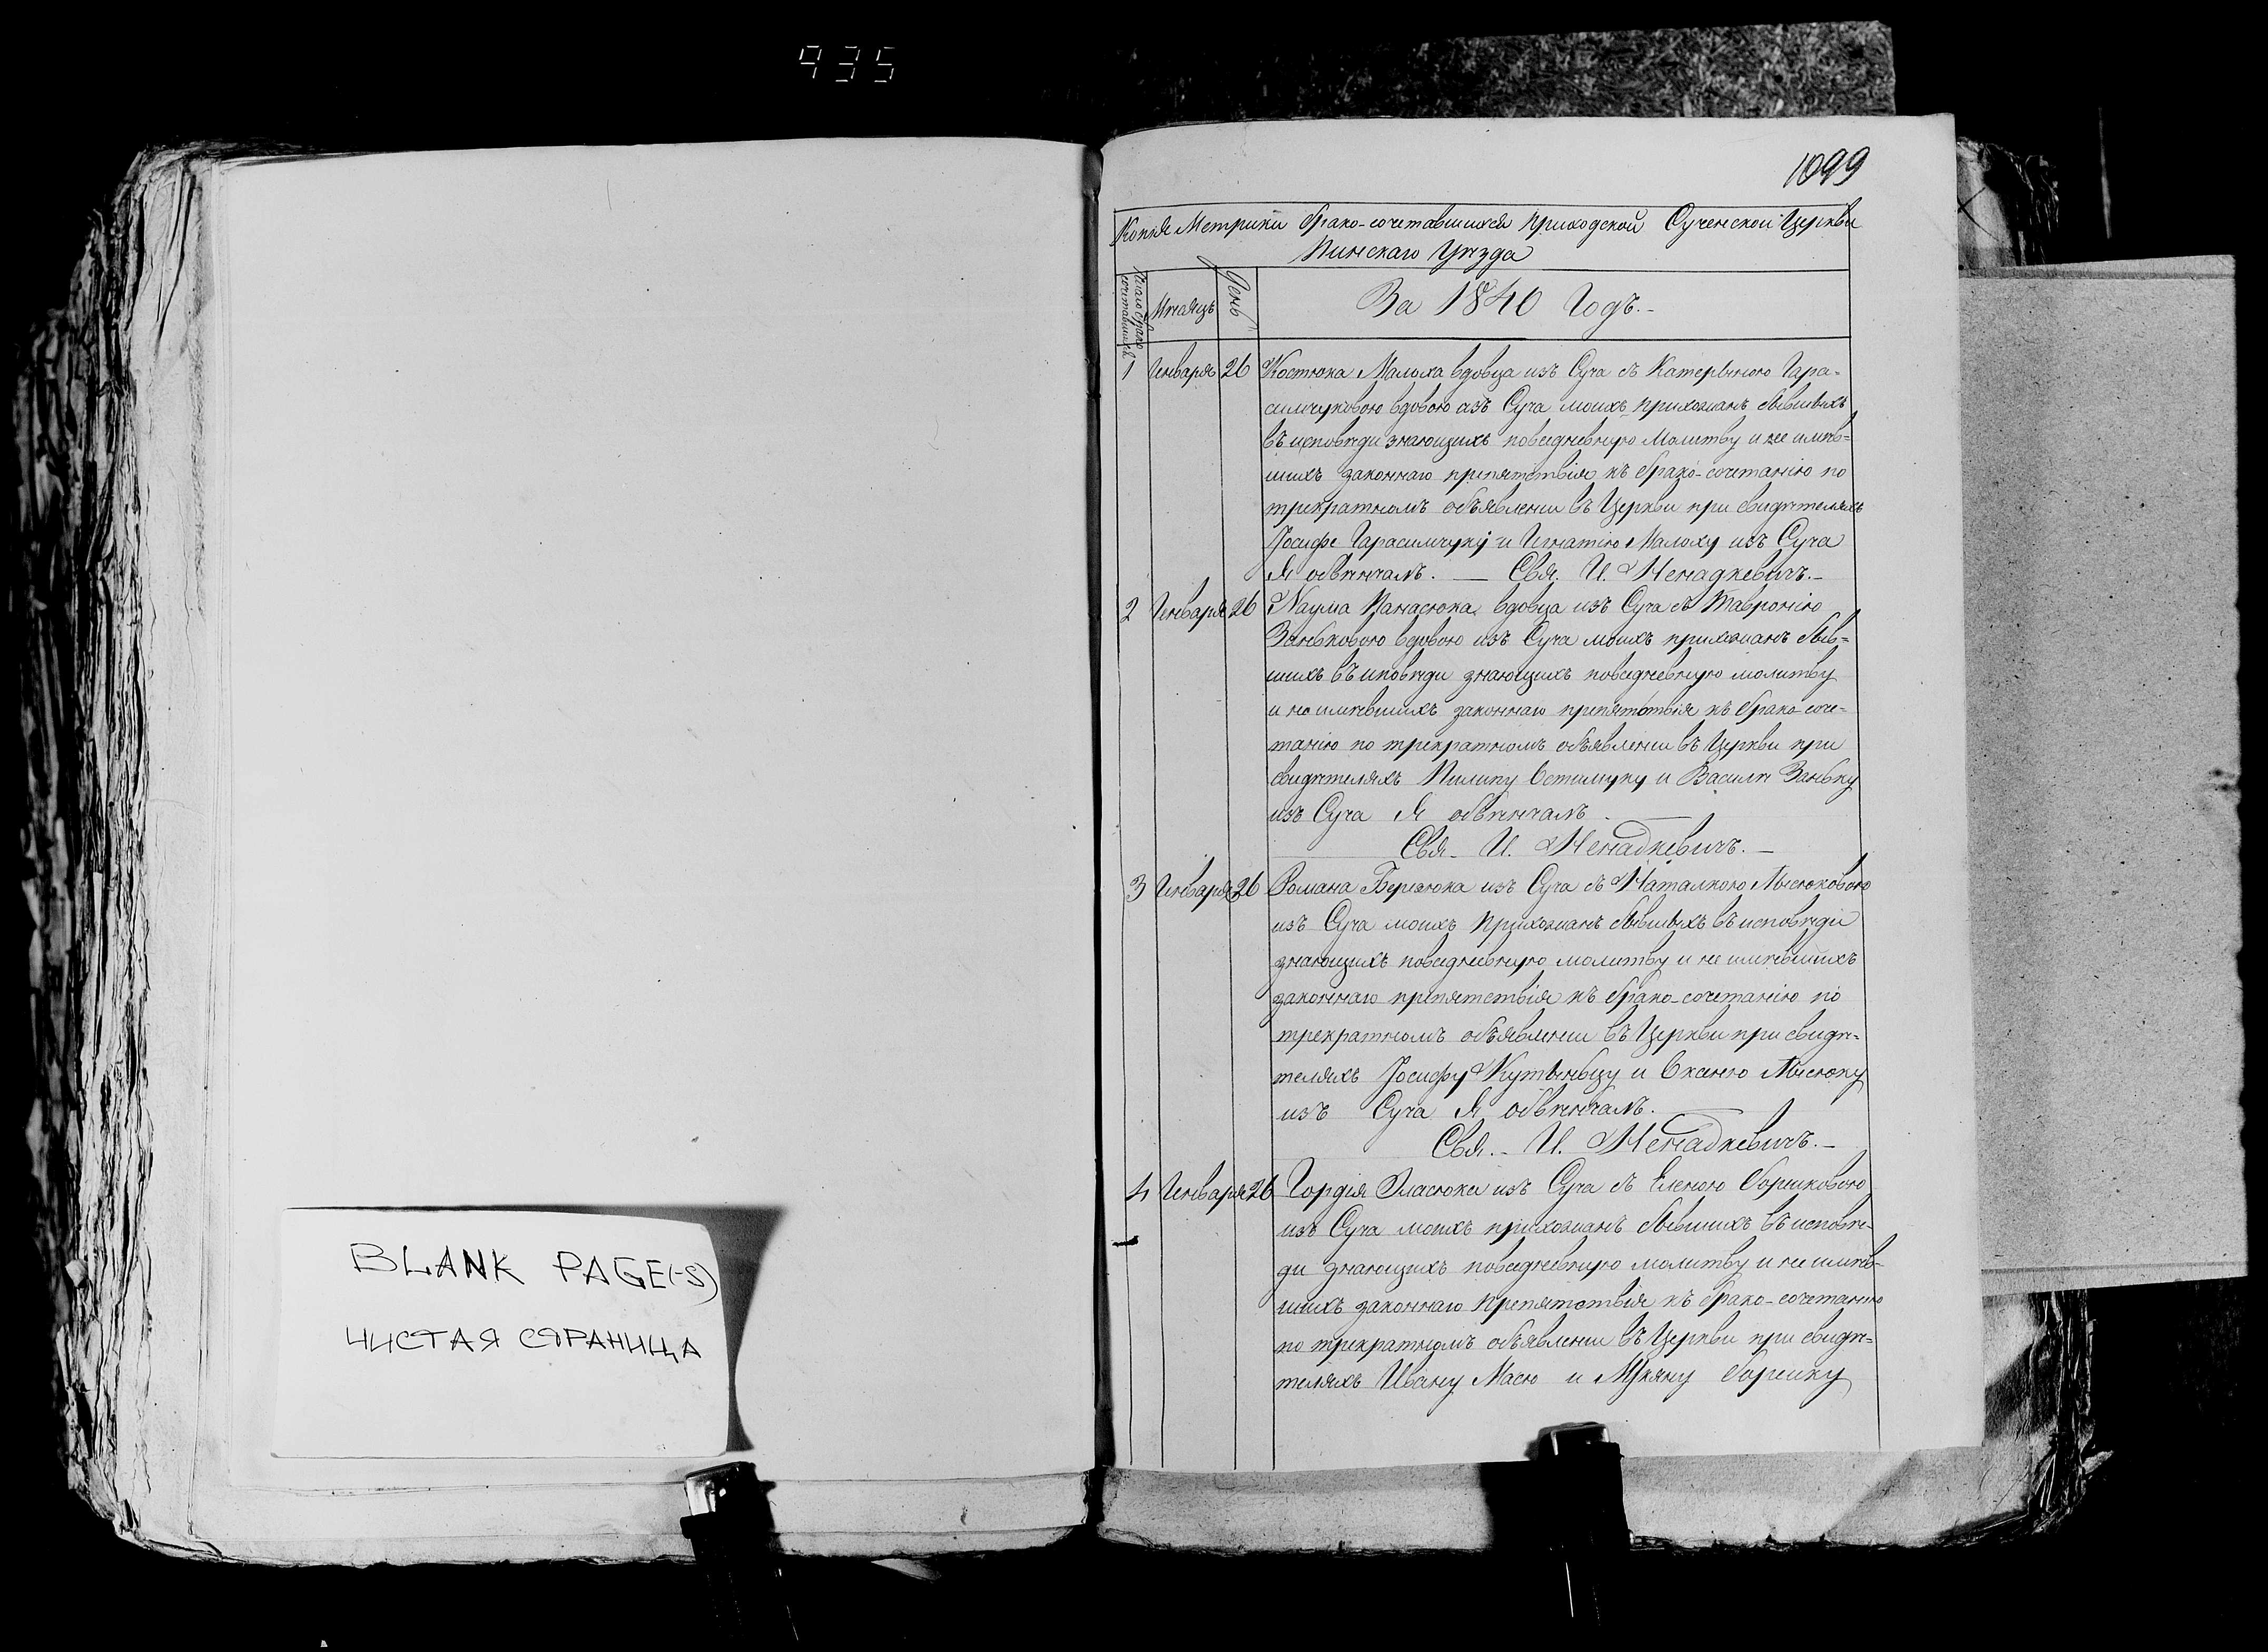 935
1099
Копія Метрики брако-сочетавшихся приходской Сученской Церкви
Пинскаго Уѣзда
Число брако
сочетавшихся
Мѣсяцъ
День
За 1840 Годъ.-
1 Января 26 Костюка Малыха вдовца изъ Суча съ Катерыною Гара-
симчуковою вдовою изъ Суча моихъ прихожанъ бывшихъ
въ исповѣди знающихъ повседневную Молитву и не имѣв=
шихъ законнаго препятствія къ брако-сочетанію по
трекратномъ объявленіи въ Церкви при свидѣтеляхъ
Іосифе Гарасимчуку и Игнатію Малоху изъ Суча
Я обвѣнчалъ. — Свя. И. Ненадкевичъ.-
2 Января 26 Наума Панасюка вдовца изъ Суча съ
Заньковою вдовою изъ Суча моихъ прихожанъ быв=
шихъ въ иповѣди знающихъ повседневную молитву
и не имѣвшихъ законнаго препятствія къ брако-соче-
танію по трекратномъ объявленіи въ Церкви при
свидѣтеляхъ Пилипу Остимчуку и Василѣ Заньку
изъ Суча Я обвѣнчалъ.
Свя. И. Ненадкевичъ.—
3 Января 26 Романа из Суча съ Наталкою Мысюковою
изъ Суча моихъ прихожанъ бывшихъ въ исповѣди
знающихъ повседневную молитву и не имѣвшихъ
законнаго препятствія къ брако-сочетанію по
трекратномъ объявленіи въ Церкви при свидѣ-
теляхъ Іосифу и Мысюку
изъ Суча Я обвѣнчалъ.
Свя. И. Ненадкевичъ.—
4 Января 26 Гордія Власюка изъ Суча съ Еленою
изъ Суча моихъ прихожанъ бывшихъ въ исповѣ-
ди знающихъ повседневную молитву и не имѣв-
шихъ законнаго препятствія къ брако-сочетанію
по трекратномъ объявленіи въ Церкви при свидѣ=
теляхъ Ивану Масю и
BLANK PAGE(-S)
ЧИСТАЯ СТРАНИЦА